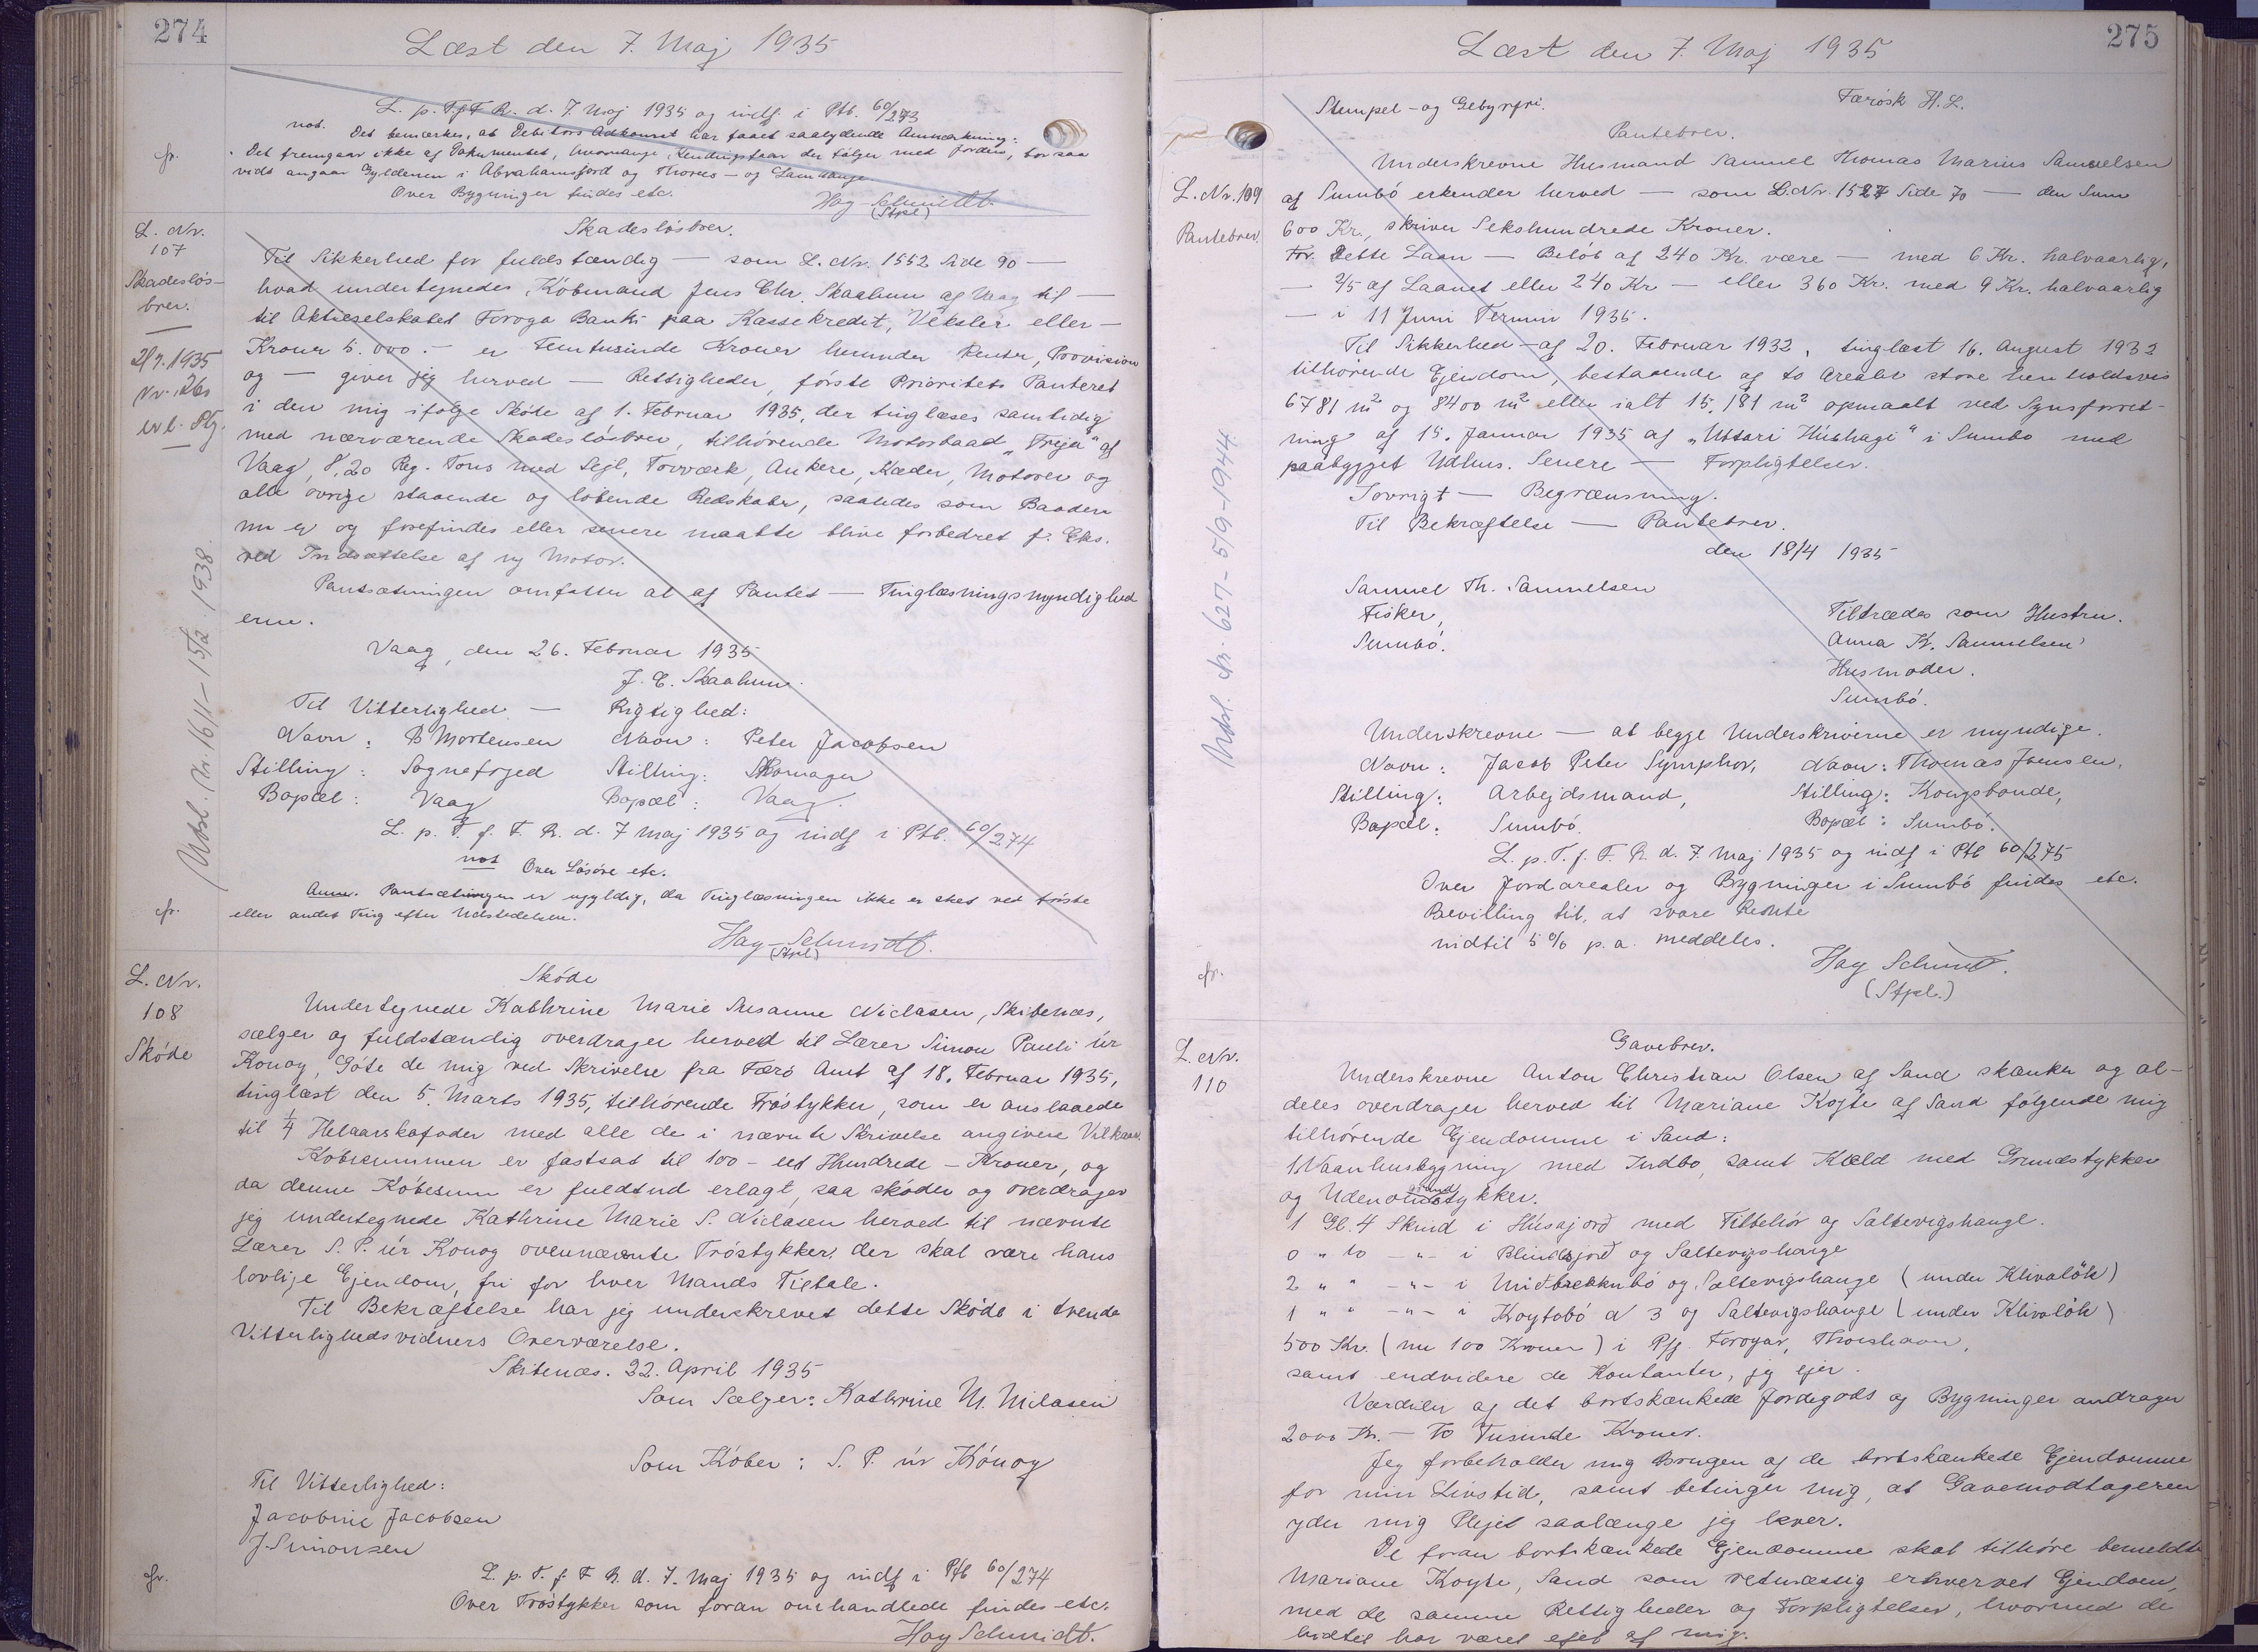 274
Læst den 7. Maj 1935
L. p. T. f. F. R. d. 7. Maj 1935 og indf i Ptb. 60/273
not. Det bemærkes, at Debitors Adkomst har faaet saalydende Anmærkning:
Det fremgaar ikke af Dokumentet, hvormange Kendingsfaar der følger med Jorden, for saa
vidt angaar Gyldenen i Abrahamsjord og
Over Bygninger findes etc.
Hay-Schmidt.
(Stpl)
fr.
L. Nr.
107
Skadesløs-
brev.
2/7. 1935
Nr. 261
Udsl. Nr. 16/1 - 15/12 1938.
Skadesløsbrev.
Til Sikkerhed for fuldstændig — som L. Nr. 1552 Side 90 —
hvad undertegnedes, Købmand Jens Chr. Skaalum af Vaag til —
til Aktieselskabet Føroya Banki paa Kassekredit, Veksler eller —
Kroner 5.000.- er Femtusinde Kroner herunder Renter, Provision
og — giver jeg herved — Rettigheder, første Prioritets Panteret
i den mig ifølge Skøde af 1. Februar 1935, der tinglæses samtidig
med nærværende Skadesløsbrev, tilhørende Motorbaad „Freja" af
Vaag, 8,20 Reg. Tons med Sejl, Tovværk, Ankere, Kæder, Motoren og
alle øvrige staaende og løbende Redskaber, saaledes som Baaden
nu er og forefindes eller senere maatte blive forbedret f. Eks.
ved Indsættelse af ny Motor.
Pantsætningen omfatter at af Pantet — Tinglæsningsmyndighed
erne.
Vaag, den 26. Februar 1935
J. C. Skaalum.
Til Vitterlighed — Rigtighed:
Navn: B Mortensen Navn: Peter Jacobsen
Stilling: Sognefoged Stilling: Skomager
Bopæl: Vaag Bopæl: Vaag.
L. p. T. f. F. R. d. 7 Maj 1935 og indf i Ptb. 60/274
not Over Løsøre etc.
Anm. Pantsætningen er ugyldig, da Tinglæsningen ikke er sket ved første
eller andet Ting efter Udstedelsen.
fr.
Hay-Schmidt.
(Stpl)
L. Nr.
108
Skøde
Skøde
Undertegnede Kathrine Marie Susanne Niclasen, Skibenæs,
sælger og fuldstændig overdrager herved til Lærer Simon Pauli úr
Konoy, Gøte de mig ved Skrivelse fra Færø Amt af 18. Februar 1935,
tinglæst den 5. Marts 1935, tilhørende Trøstykker, som er anslaaede
til 1/4 Helaarskofoder med alle de i nævnte Skrivelse angivne Vilkaar.
Købesummen er fastsat til 100 - eet Hundrede - Kroner, og
da denne Købesum er fuldtud erlagt, saa skøder og overdrager
jeg undertegnede Kathrine Marie S. Niclasen herved til nævnte
Lærer S. P. úr Konoy ovennævnte Trøstykker, der skal være hans
lovlige Ejendom, fri for hver Mands Tiltale.
Til Bekræftelse har jeg underskrevet dette Skøde i tvende
Vitterlighedsvidners Overværelse.
Skibenæs. 22. April 1935
Som Sælger: Kathrine M. Niclasen
Som Køber: S. P. úr Kónoy
Til Vitterlighed:
Jacobine Jacobsen
J. Simonsen
L. p. T. f. F R. d. 7. Maj 1935 og indf i Ptb 60/274
fr.
Over Trøstykker som foran omhandlede findes etc.
Hay Schmidt.
275
Læst den 7. Maj 1935
Stempel- og Gebyrfri. Færøsk H. L.
Pantebrev.
L. Nr. 109
Pantebrev.
Udsl. Nr. 627 - 5/9 - 1944
Underskrevne Husmand Samuel Thomas Marius Samuelsen
af Sumbó erkender herved — som L. Nr. 1527 Side 70 — den Sum
600 Kr., skriver Sekshundrede Kroner.
For. Dette Laan — Beløb af 240 Kr. være — med 6 Kr. halvaarlig,
— 2/5 af Laanet eller 240 Kr — eller 360 Kr. med 9 Kr. halvaarlig
— i 11 Juni Termin 1935.
Til Sikkerhed — af 20. Februar 1932, tinglæst 16. August 1932
tilhørende Ejendom, bestaaende af to Arealer store henholdsvis
6781 m² og 8400 m² eller ialt 15.181 m² opmaalt ved Synsforret-
ning af 15. Januar 1935 af „Uttari Húshagi" i Sumbo med
paabygget Udhus. Senere — Forpligtelser.
Iøvrigt — Begrænsning.
Til Bekræftelse — Pantebrev.
den 18/4 1935
Samuel Th. Samuelsen
Fisker,
Sumbó.
Tiltrædes som Hustru.
Anna K. Samuelsen
Husmoder.
Sumbó.
Underskrevne — at begge Underskriverne er myndige.
Navn: Jacob Peter Symphor, Navn: Thomas Joensen,
Stilling: Arbejdsmand, Stilling: Kongsbonde,
Bopæl: Sumbó. Bopæl: Sumbó.
L. p. T. f. F. R. d. 7. Maj 1935 og indf i Ptb 60/275
Over Jordarealer og Bygninger i Sumbó findes etc.
Bevilling til, at svare Rente
indtil 5 % p. a. meddeles.
fr.
Hay Schmidt.
(Stpl.)
L. Nr.
110
Gavebrev.
Underskrevne Anton Christian Olsen af Sand skænker og al-
deles overdrager herved til Mariane Kojte af Sand følgende mig
tilhørende Ejendomme i Sand:
1 Vaanhusbygning med Indbo, samt Kæld med Grundstykker
og Udenomstykker.
1 Gl. 4 Skind i Húsajorð med Tilbehør og Saltevigshauge.
0 " 10 - " - i Blindajorð og Saltevigshauge
2 " " - " - i Miðbrekkubó og Saltevigshauge (under Klivaløk)
1 " " - " - i Koytobó N 3 og Saltevigshauge (under Klivaløk)
500 Kr. (nu 100 Kroner) i Pfg. Føroyar, Thorshavn,
samt endvidere de Kontanter, jeg ejer.
Værdien af det bortskænkede Jordegods og Bygninger andrager
2000 Kr. - To Tusinde Kroner.
Jeg forbeholder mig Brugen af de bortskænkede Ejendomme
for min Livstid, samt betinger mig, at Gavemodtageren
yder mig Pleje saalænge jeg lever.
De foran bortskænkede Ejendomme skal tilhøre bemeldte
Mariane Koyte, Sand som retmæssig erhvervet Ejendom,
med de samme Rettigheder og Forpligtelser, hvormed de
hidtil har været ejet af mig.